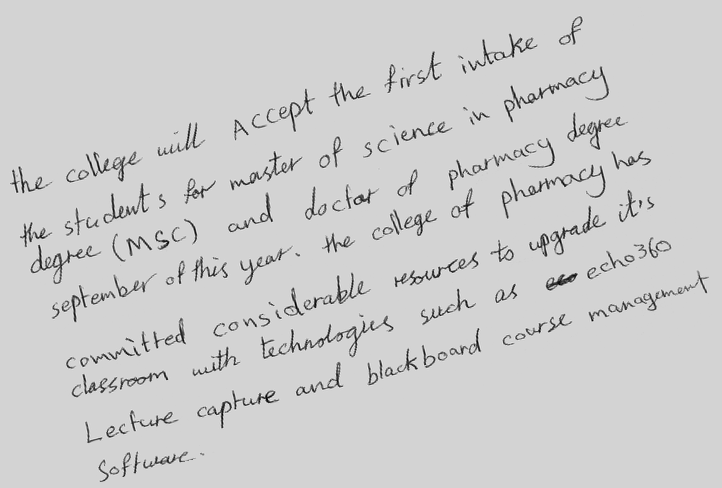 the college will Accept the first intake of
the students for master of science in pharmacy
degree (MSC) and doctor of pharmacy degree
september of this year. the college of pharmacy has
committed considerable resources to upgrade it's
classroom with technologies such as echo360
Lecture capture and blackboard course management
Software.